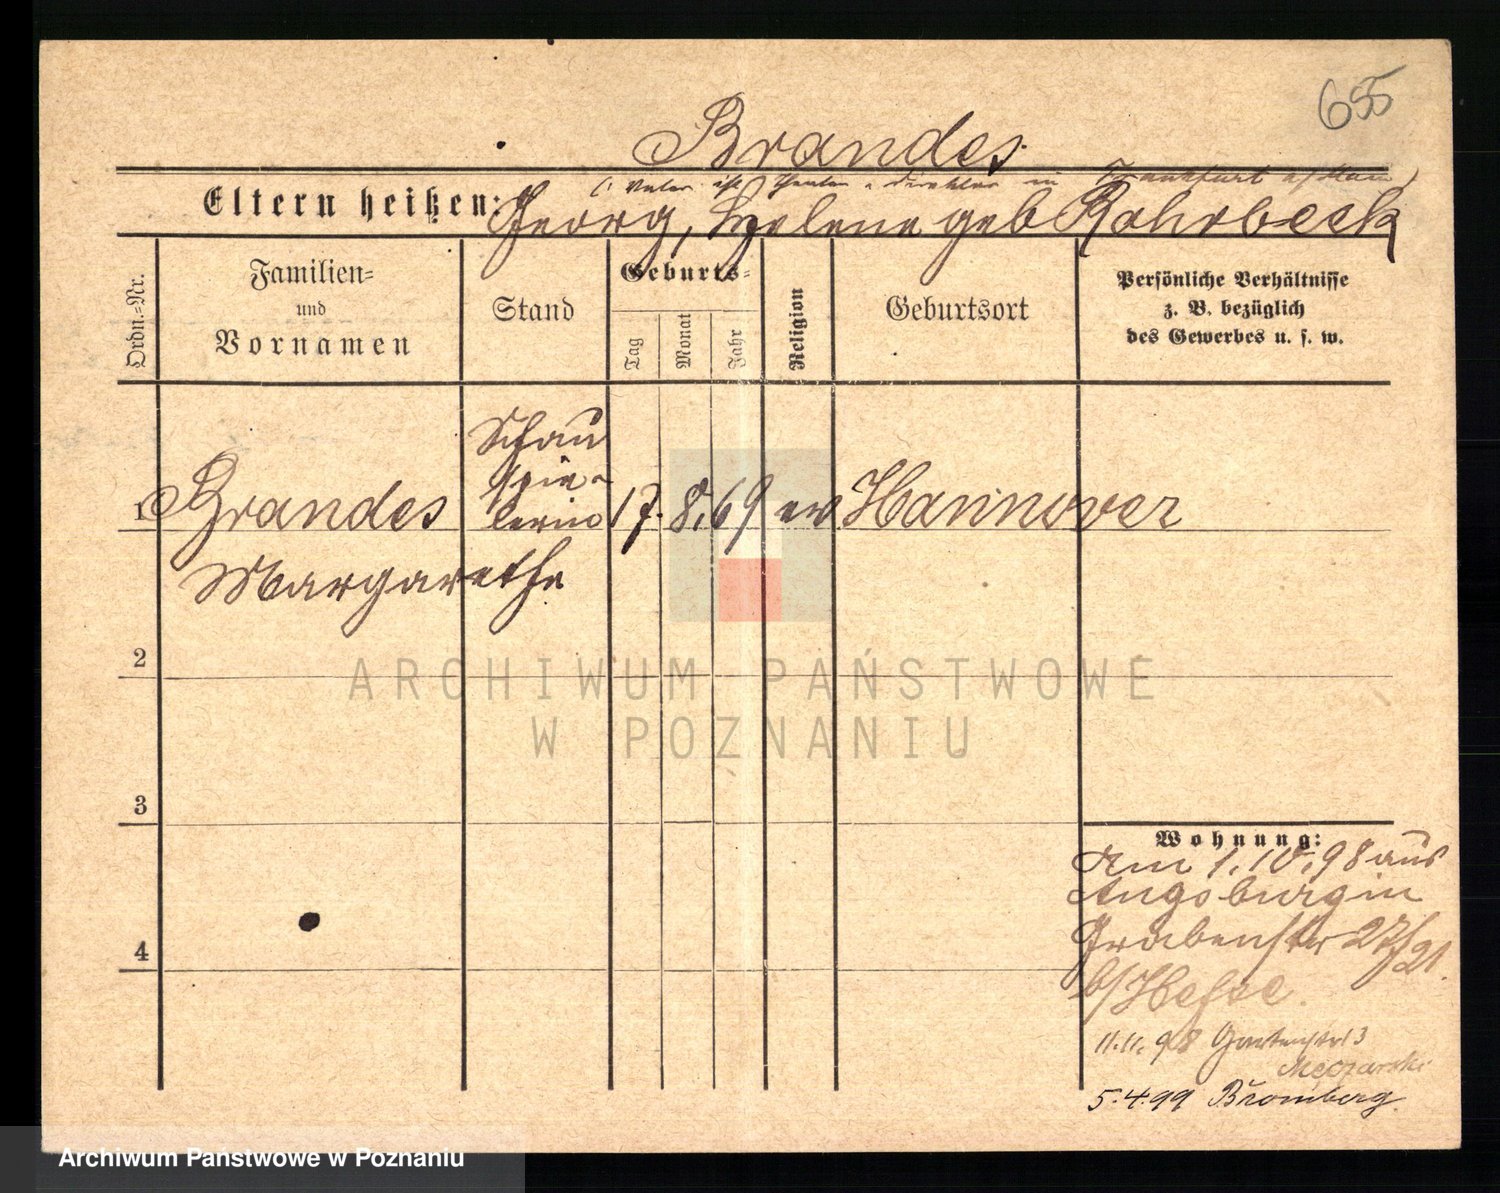 655
Brandes
(: Vater ist Theater-direktor in Frankfurt a/Main
Eltern heißen: Georg, Helene geb Rohrbeck
Ordn.-Nr.
Familien-
und
Vornamen
Stand
Geburts-
Tag
Monat
Jahr
Religion
Geburtsort
Persönliche Verhältnisse
z. B. bezüglich
des Gewerbes u. s. w.
Schau
spie-
1 Brandes lerin 17. 8. 69 ev Hannover
Margarethe
2
ARCHIWUM PAŃSTWOWE
W POZNANIU
3
Wohnung:
Am 1.10.98 aus
Augsburg in
Grabenstr 27/21.
b/Hesse.
11.11.98 Gartenstr 13
Męczarski
5.4.99 Bromberg.
4
Archiwum Państwowe w Poznaniu